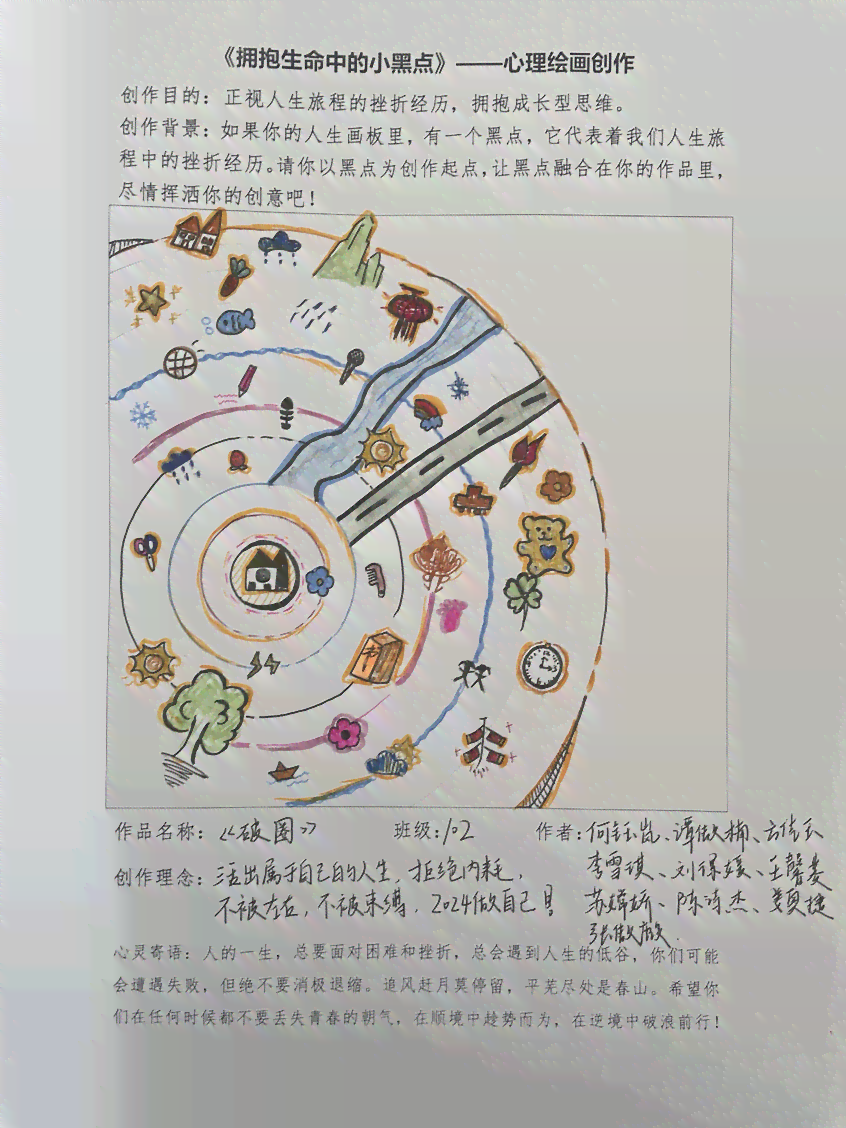 《拥抱生命中的小黑点》——心理绘画创作
创作目的：正视人生旅程的挫折经历，拥抱成长型思维。
创作背景：如果你的人生画板里，有一个黑点，它代表着我们人生旅
程中的挫折经历。请你以黑点为创作起点，让黑点融合在你的作品里，
尽情挥洒你的创意吧！
书
作品名称：《破圈》 班级：102 作者：
创作理念：活出属于自己的人生，拒绝内耗， 李雪琪、
不被左右，不被束缚，2024做自己 陈诗杰、
心灵寄语：人的一生，总要面对困难和挫折，总会遇到人生的低谷，你们可能
会遭遇失败，但绝不要消极退缩。追风赶月莫停留，平芜尽处是春山。希望你
们在任何时候都不要丢失青春的朝气，在顺境中趁势而为，在逆境中破浪前行！